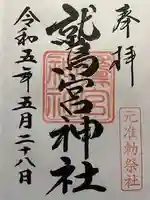 奉拝
鷲宮神社
元准勅祭社
令和五年五月二十八日